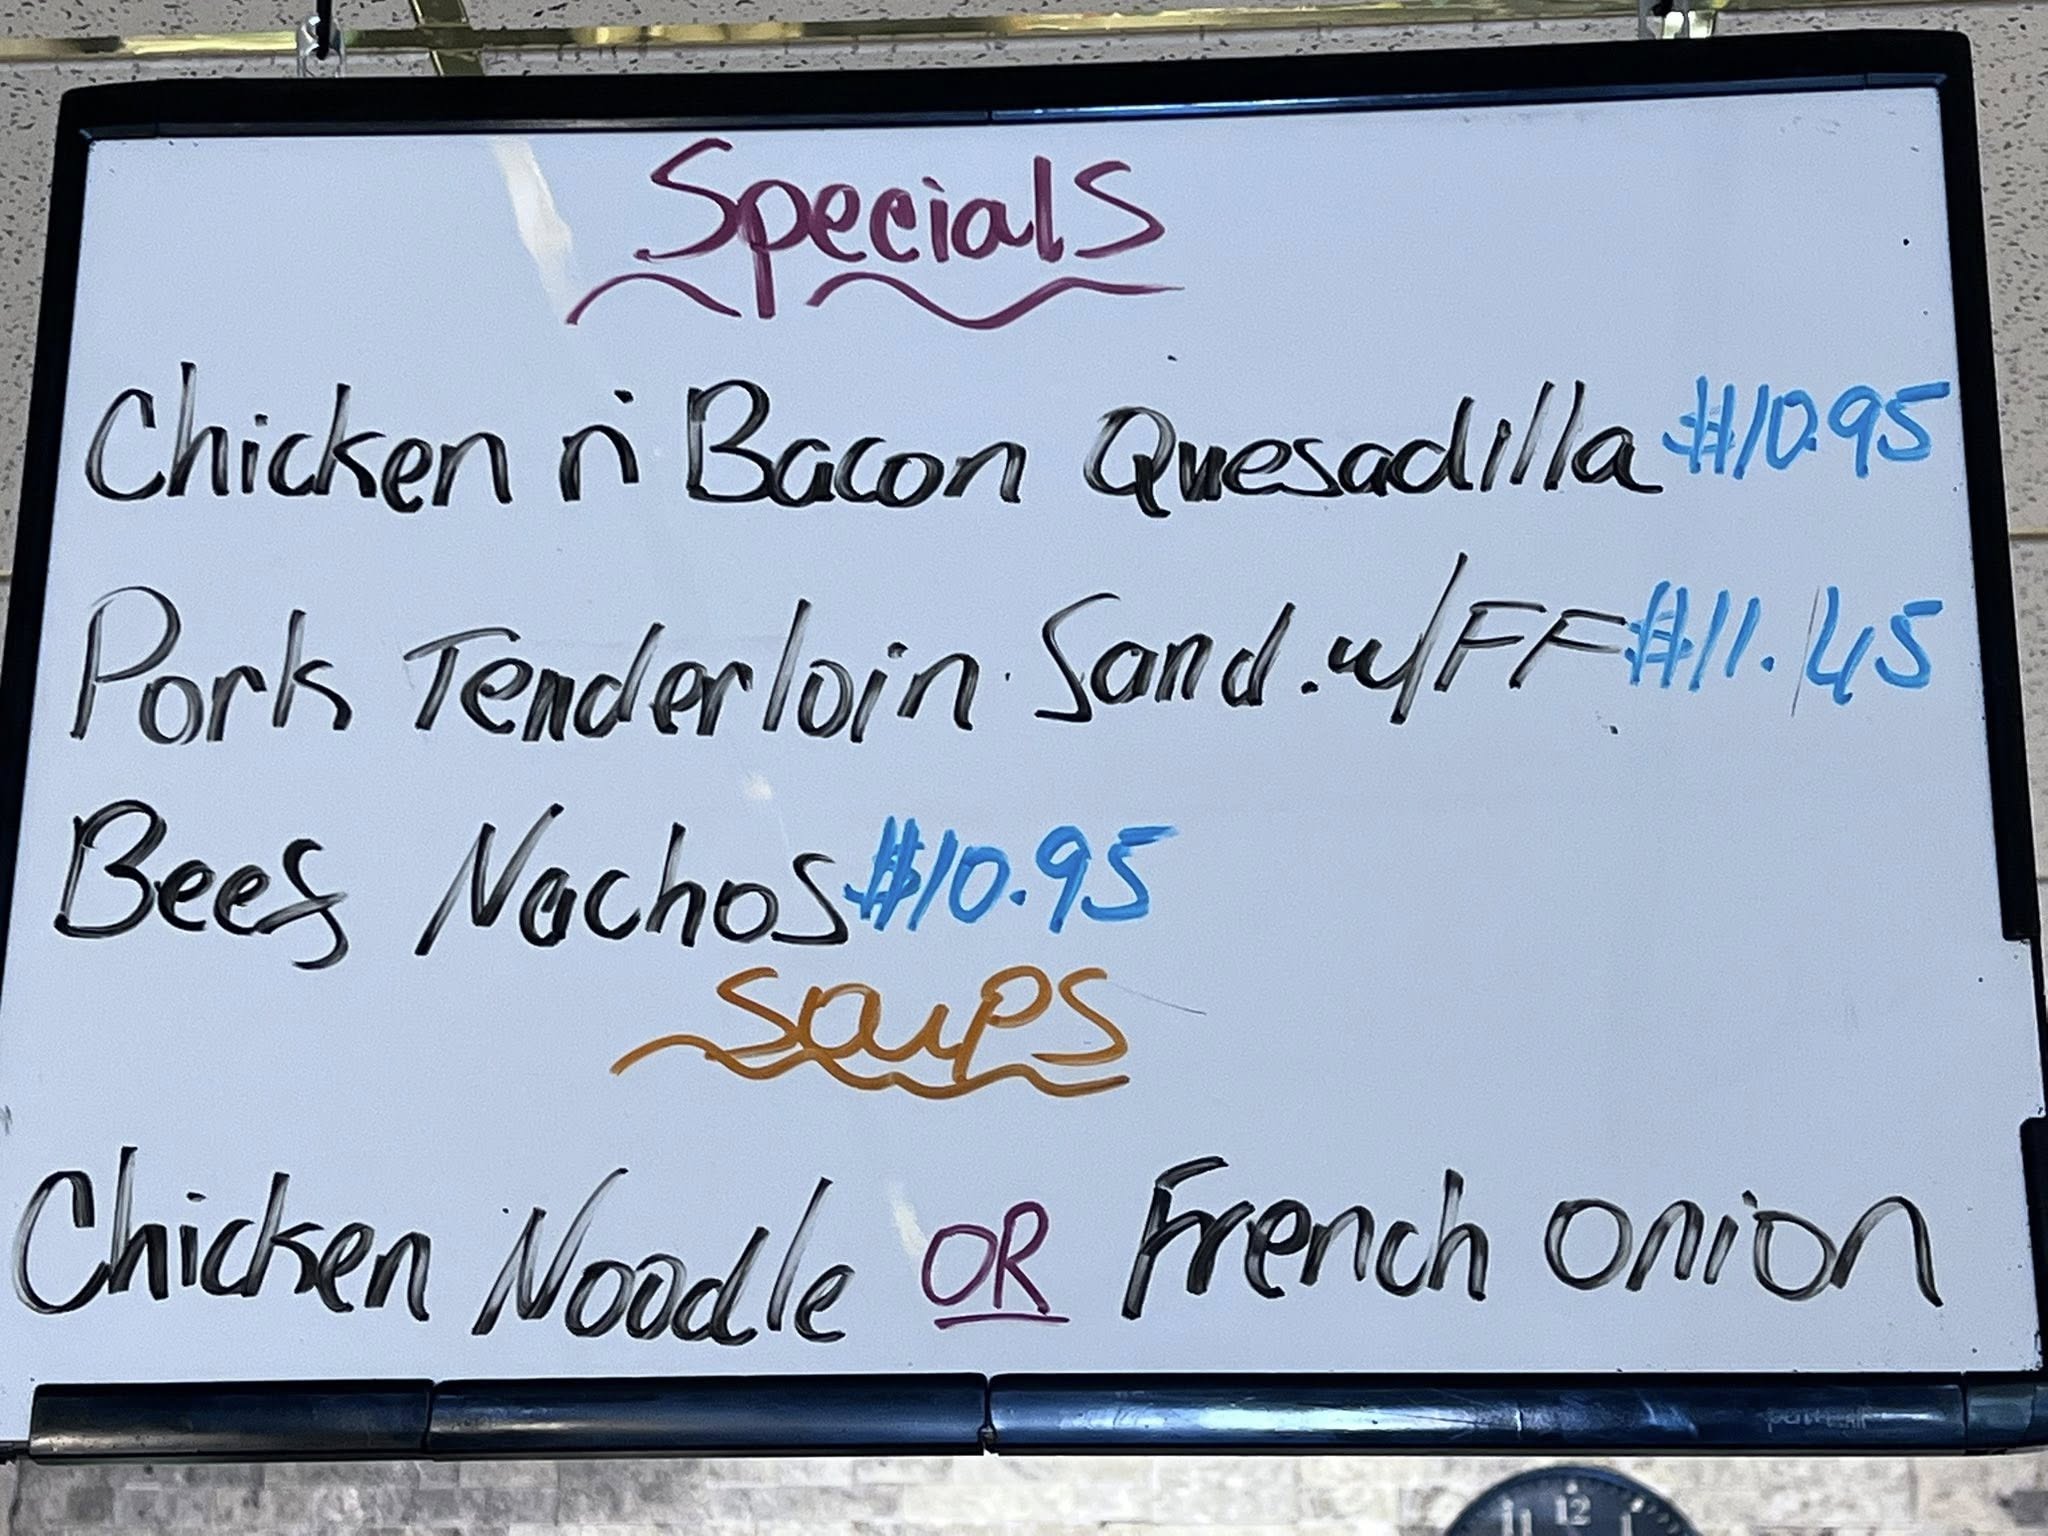 Specials
Chicken n' Bacon Quesadilla $10.95
Pork Tenderloin Sand. w/FF $11.45
Beef Nachos $10.95
Soups
Chicken Noodle OR French Onion
11 12 1